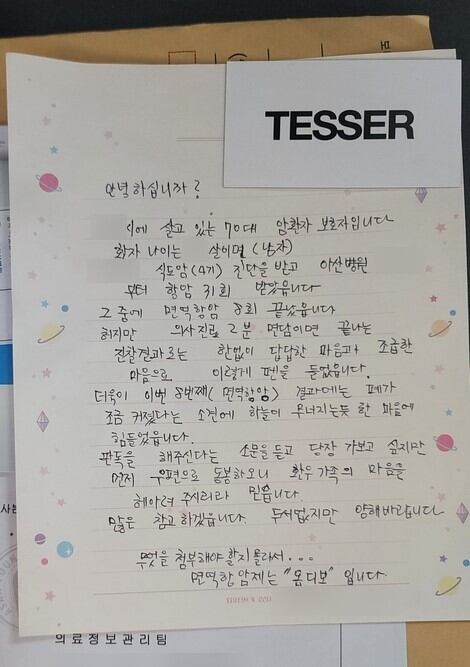 TESSER
안녕하십니까?
에 살고 있는 70대 암환자 보호자입니다
환자 나이는 살이며 (남자)
식도암(4기) 진단을 받고 아산병원
부터 항암 31회 받았읍니다
그 중에 면역항암 8회 끝났읍니다
허지만 의사진료 2분 면담이면 끝나는
진찰결과로는 한없이 답답한 마음과 조급한
마음으로 이렇게 펜을 들었읍니다.
더욱이 이번 8번째(면역항암) 결과에는 폐가
조금 커졌다는 소견에 하늘이 무너지는듯 한 마음에
힘들었읍니다.
판독을 해주신다는 소문을 듣고 당장 가보고 싶지만
먼저 우편으로 동봉하오니 환우 가족의 마음을
헤아려 주시리라 믿읍니다.
많은 참고 하겠읍니다. 두서없지만 양해바랍니다
무엇을 첨부해야 할지 몰라서...
면역항암제는 "옵디보" 입니다
의료정보관리팀